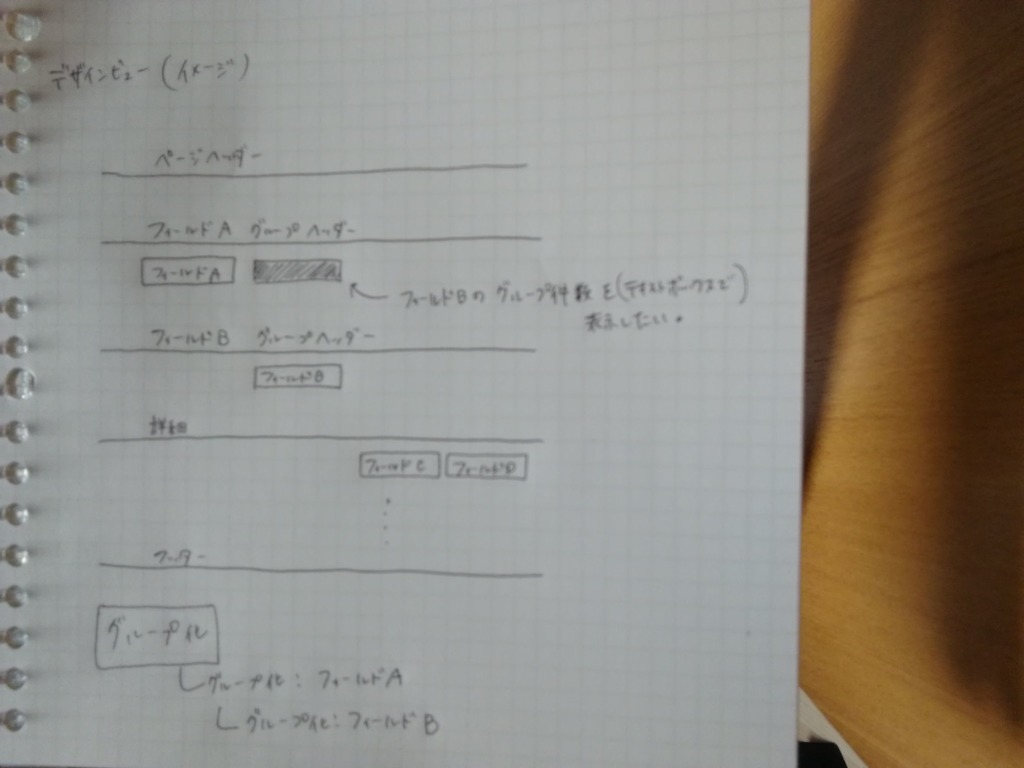 デザインビュー(イメージ)
ページヘッダー
フィールドA グループヘッダー
フィールドA
フィールドBのグループ件数を(テキストボックスで)
表示したい。
フィールドB グループヘッダー
フィールドB
詳細
フィールドC フィールドD
フッター
グループ化
グループ化:フィールドA
グループ化:フィールドB